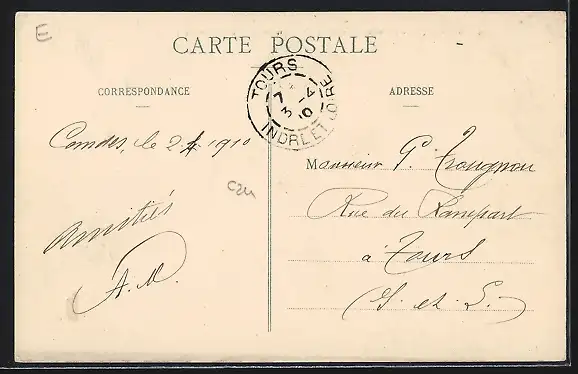 E
CARTE POSTALE
TOURS
7
3 -4
10
INDRE ET LOIRE
CORRESPONDANCE
ADRESSE
Candes, le 2 4 1910
Amitiés
A. M.
Monsieur P.
Rue du Rempart
à Tours
I. et L.